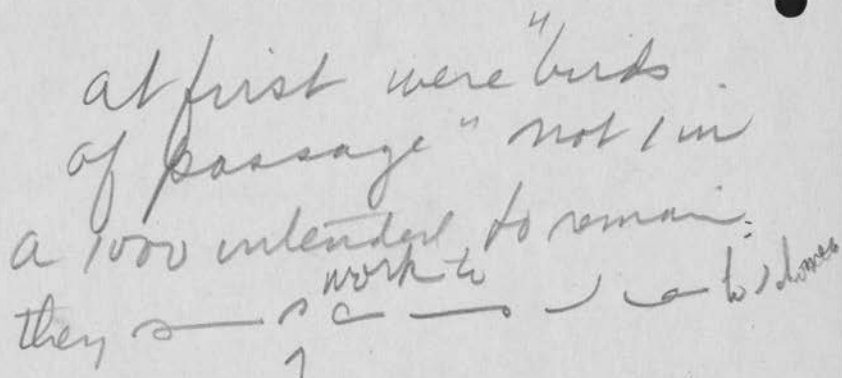 at first were "birds
of passage" not 1 in
a 1000 intended to remain;
work to
they